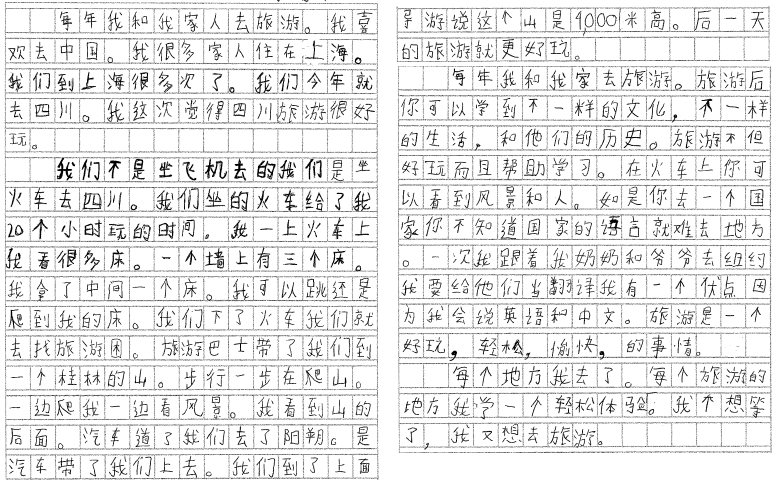 每年我和我家人去旅游。我喜
欢去中国。我很多家人住在上海。
我们到上海很多次了。我们今年就
去四川。我这次觉得四川旅游很好
玩。
我们不是坐飞机去的我们是坐
火车去四川。我们坐的火车给了我
20个小时玩的时间。我一上火车上
我看很多床。一个墙上有三个床。
我拿了中间一个床。我可以跳还是
爬到我的床。我们下了火车我们就
去找旅游团。旅游巴士带了我们到
一个桂林的山。步行一步在爬山。
一边爬我一边看风景。我看到山的
后面。汽车道了我们去了阳朔。是
汽车带了我们上去。我们到了上面
导游说这个山是4000米高。后一天
的旅游就更好玩。
每年我和我家去旅游。旅游后
你可以学到不一样的文化,不一样
的生活,和他们的历史。旅游不但
好玩而且帮助学习。在火车上你可
以看到风景和人。如是你去一个国
家你不知道国家的语言就难去地方
。一次我跟着我奶奶和爷爷去纽约
我要给他们当翻译我有一个优点因
为我会说英语和中文。旅游是一个
好玩,轻松,愉快,的事情。
每个地方我去了。每个旅游的
地方我学一个轻松体验。我不想等
了,我又想去旅游。